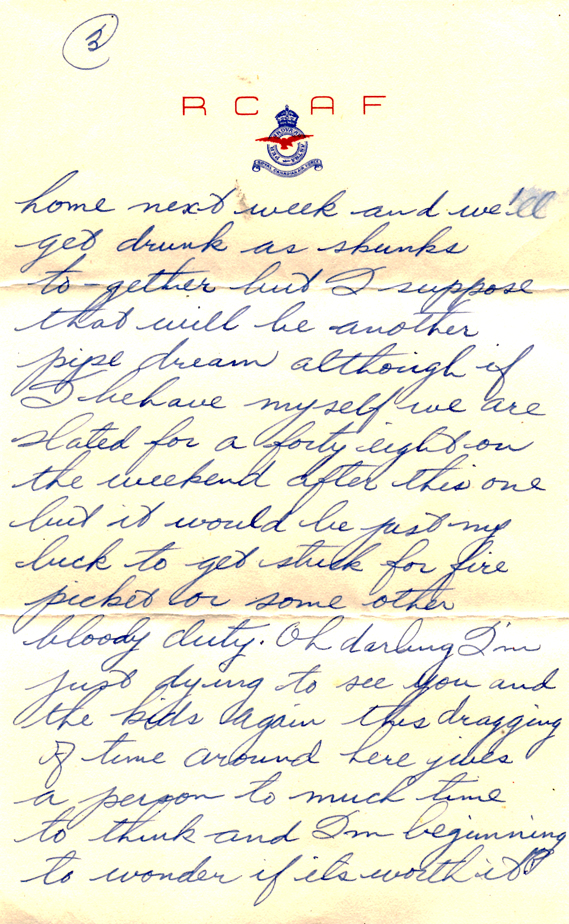 3
R C A F
PER ARDUA AD ASTRA
ROYAL CANADIAN AIR FORCE
home next week and we'll
get drunk as skunks
to-gether but I suppose
that will be another
pipe dream although if
I behave myself we are
slated for a forty eight on
the weekend after this one
but it would be just my
luck to get stuck for fire
picket or some other
bloody duty. Oh darling I'm
just dying to see you and
the kids again this dragging
of time around here gives
a person to much time
to think and I'm beginning
to wonder if its worth it